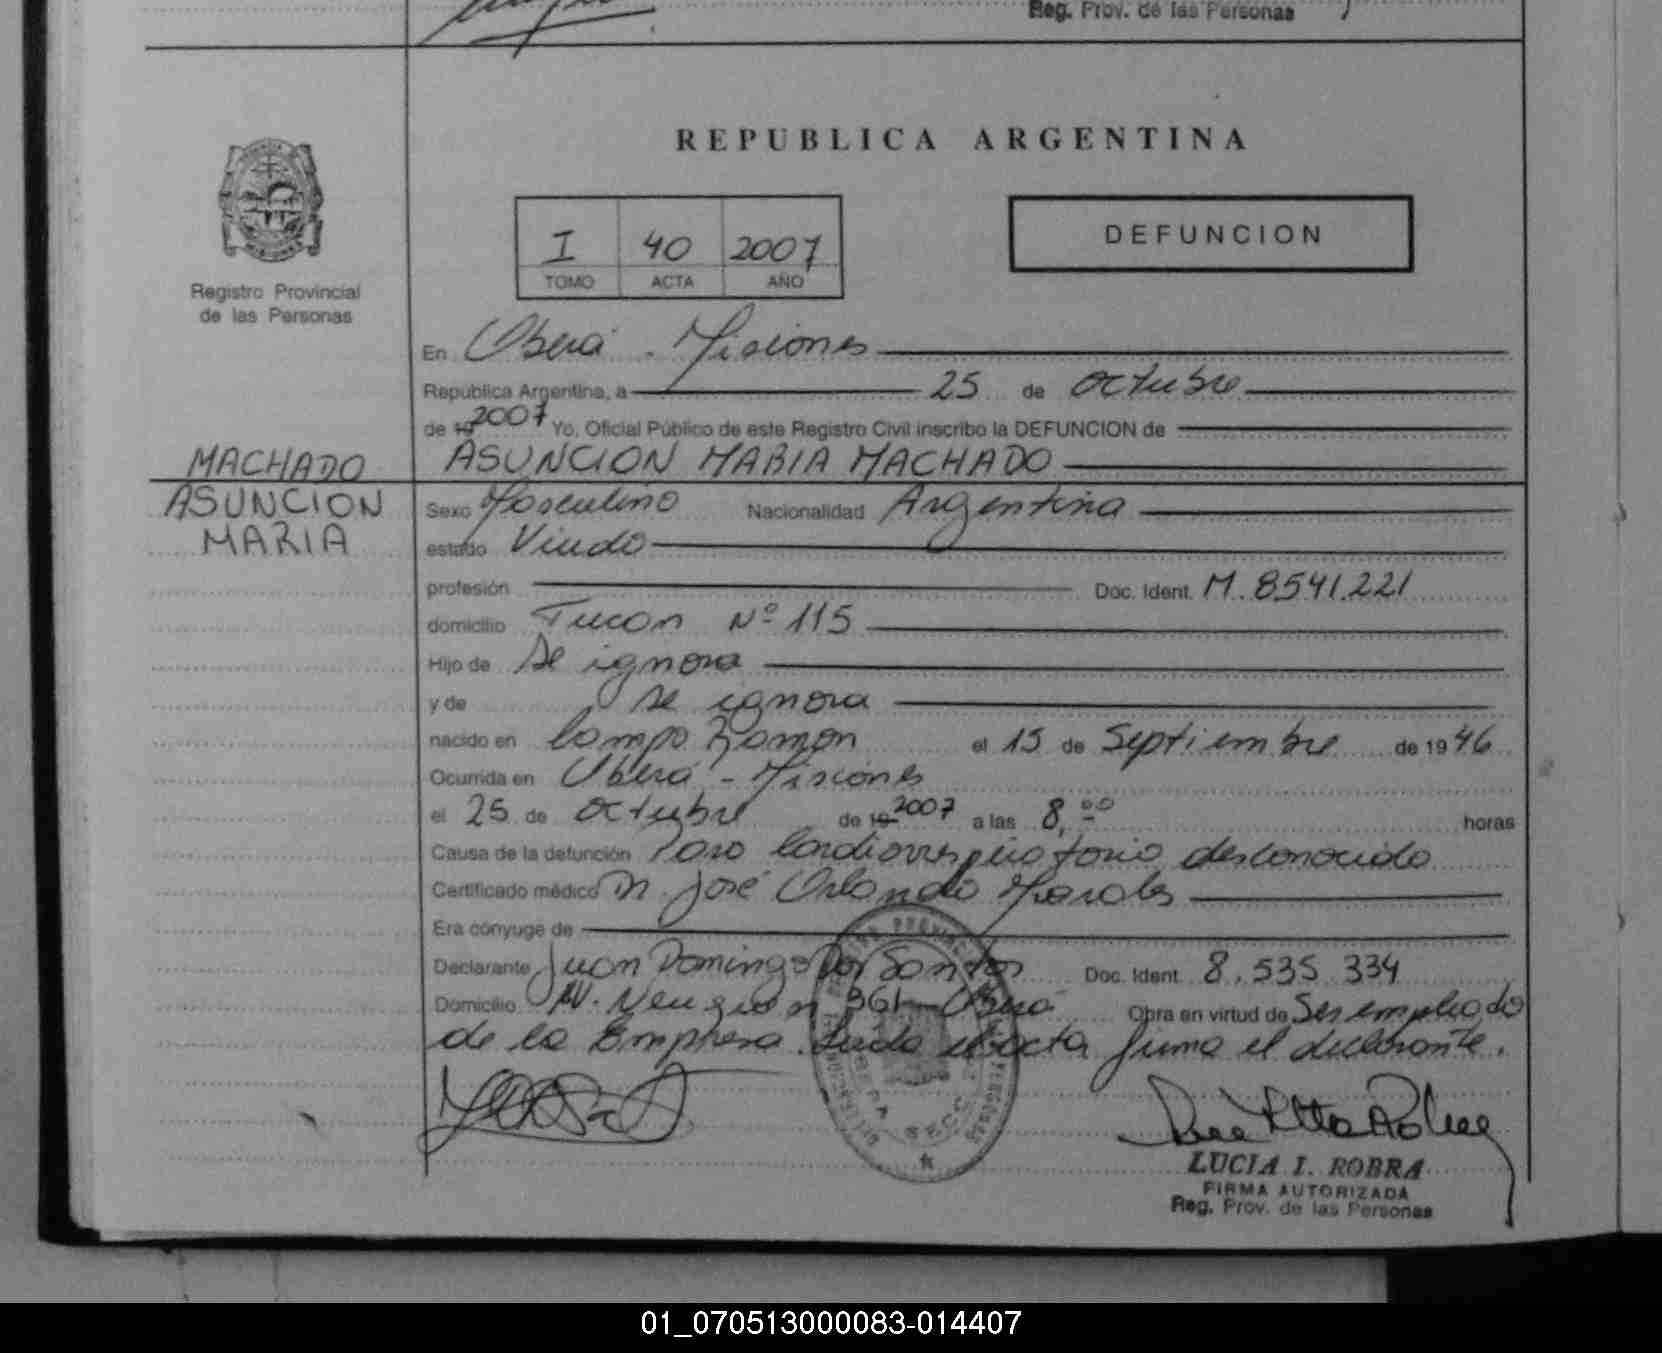 Reg. Prov. de las Personas
REPUBLICA ARGENTINA
I 40 2007
TOMO ACTA AÑO
DEFUNCION
Registro Provincial
de las Personas
En Oberá - Misiones
Republica Argentina, a 25 de octubre
de 19 2007 Yo, Oficial Público de este Registro Civil inscribo la DEFUNCION de
MACHADO
ASUNCION
MARIA
ASUNCION MARIA MACHADO
Sexo Masculino Nacionalidad Argentina
estado Viudo
profesión Doc. Ident. M. 8541.221
domicilio Tucan Nº 115
Hijo de Se ignora
y de se ignora
nacido en Campo Ramon el 15 de Septiembre de 1946
Ocurrida en Oberá - Misiones
el 25 de octubre de 19 2007 a las 8,00 horas
Causa de la defunción Paro Cardiorrespiratorio desconocido
Certificado médico Dr. José Orlando Morales
Era cónyuge de
Declarante Juan Domingo Dos Santos Doc. Ident. 8.535.334
Domicilio AV. 961 - Oberá Obra en virtud de Ser empleado
de la Empresa. Leida el acta firma el declarante.
LUCIA I. ROBRA
FIRMA AUTORIZADA
Reg. Prov. de las Personas
01_070513000083-014407